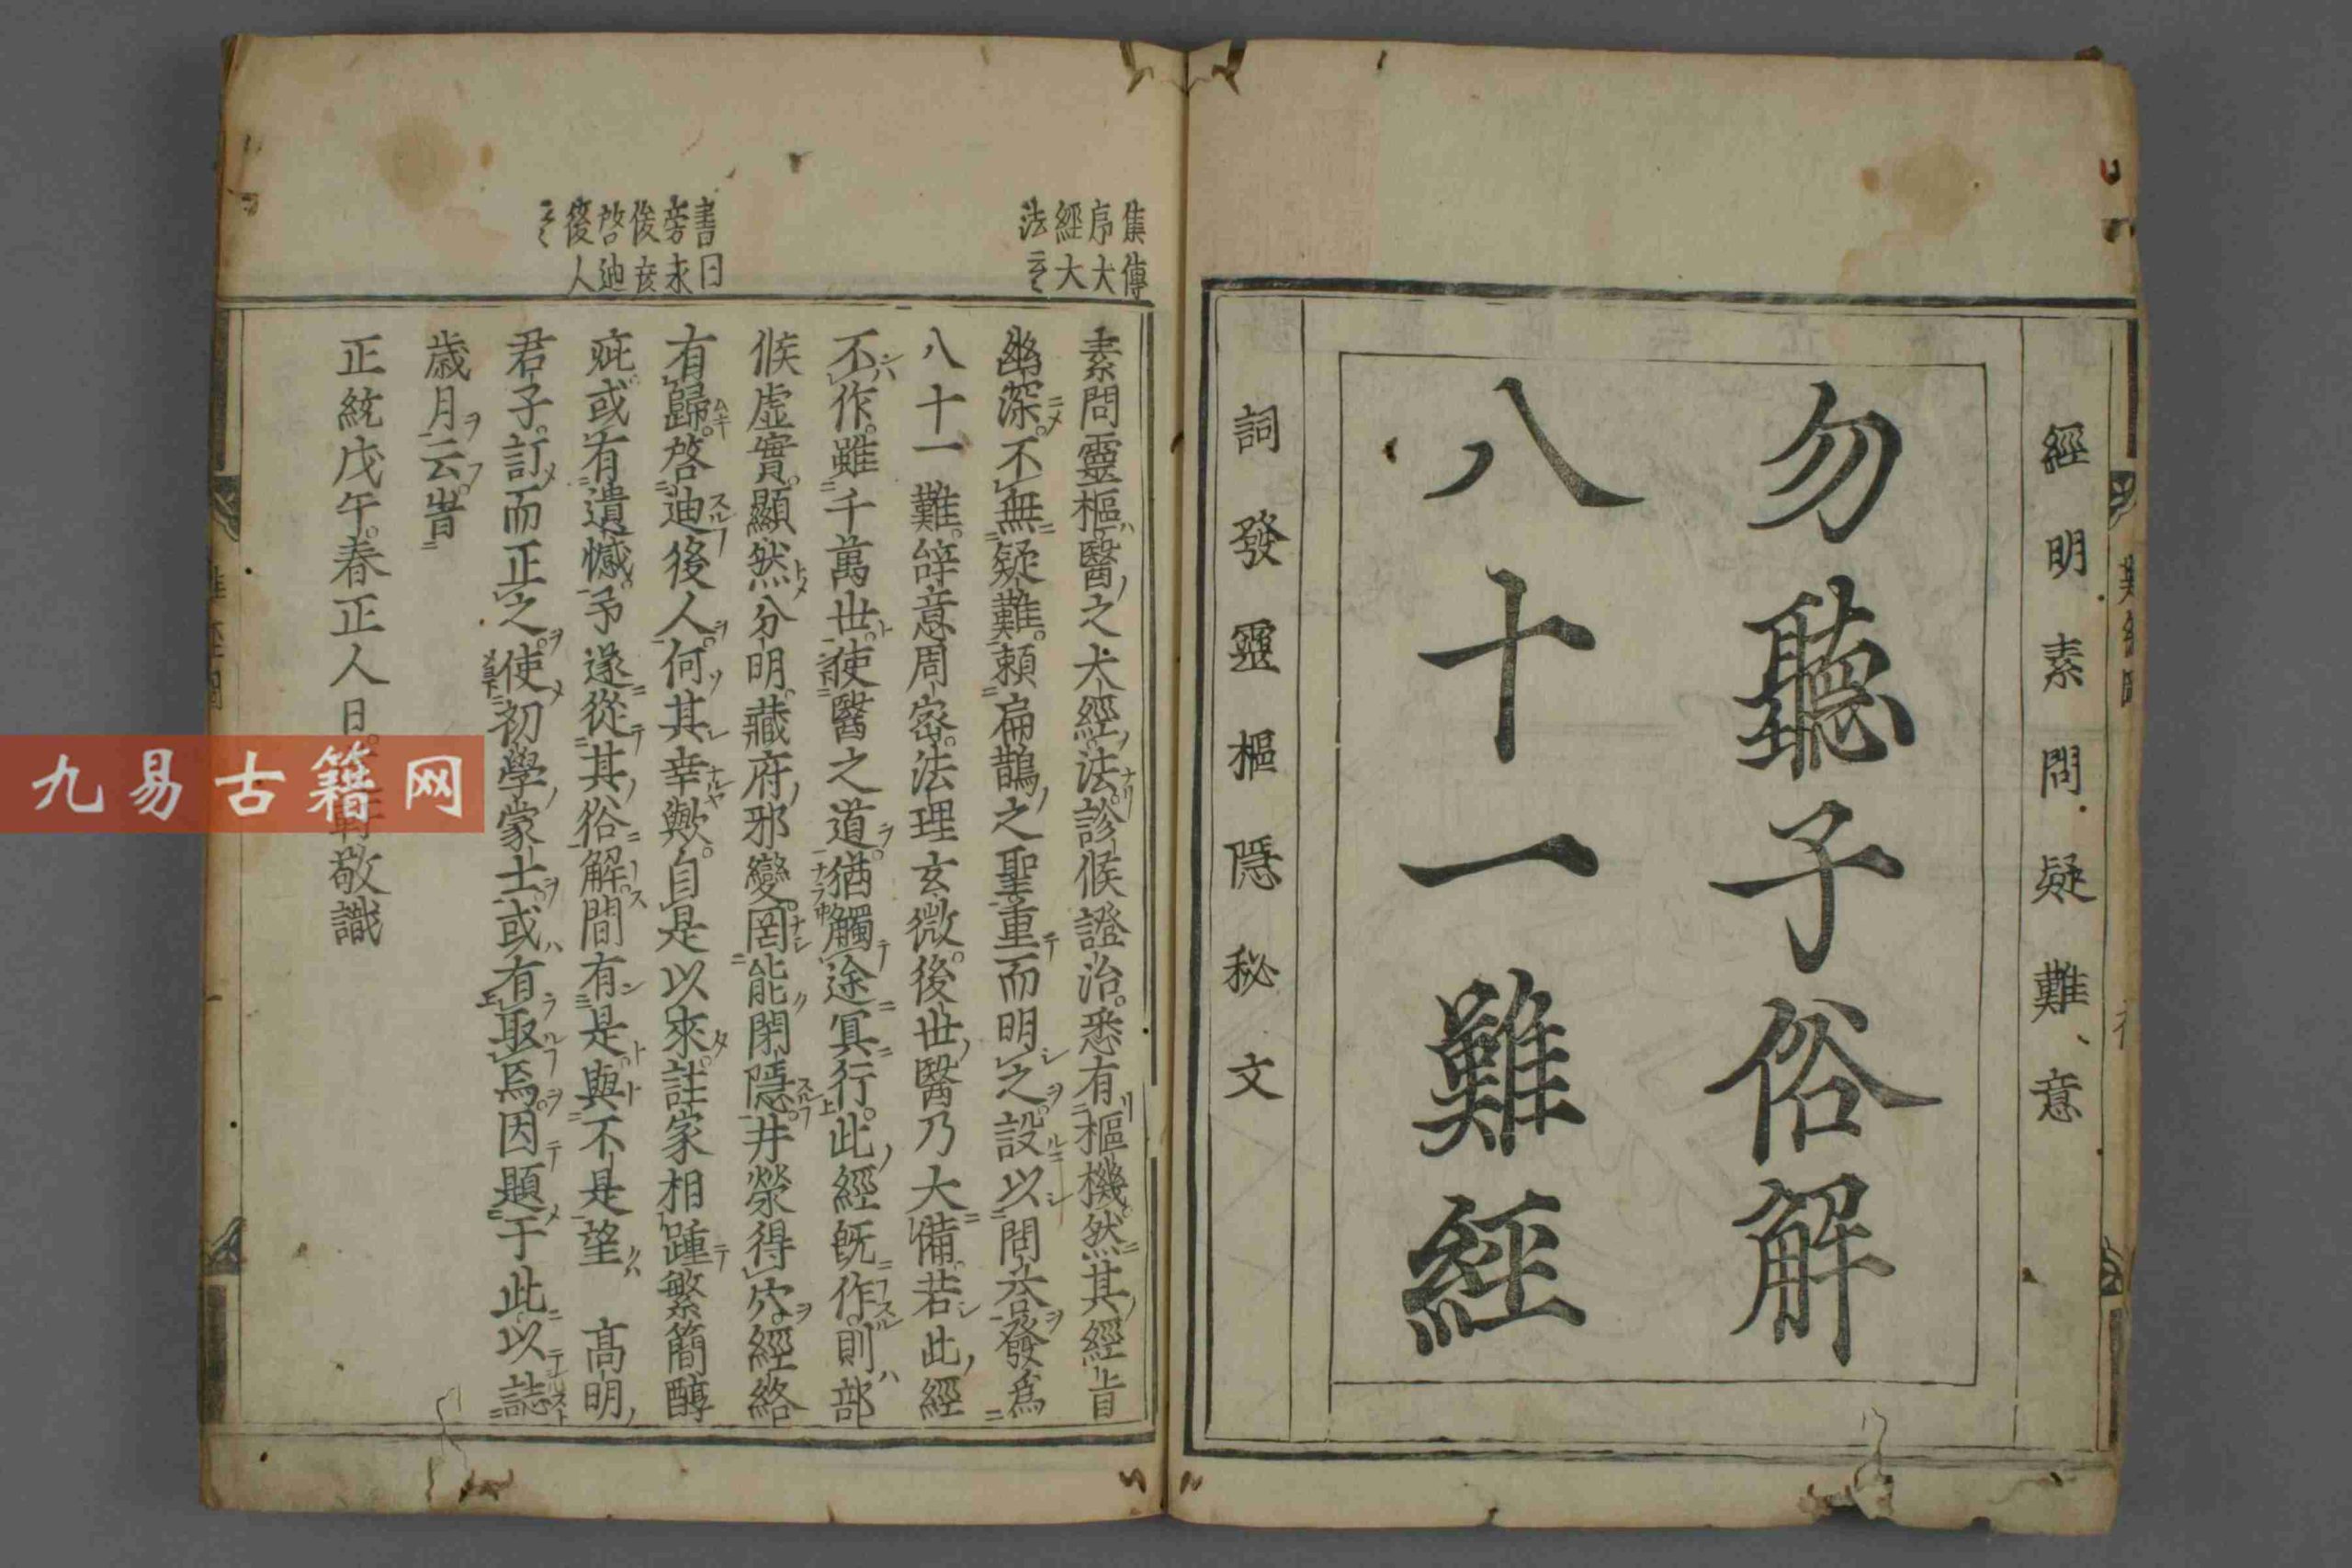 經明素問疑難意
勿聽子俗解
八十一難經
詞發靈樞隱秘文
集傳
序大
經大
法云云
書曰
旁求
俊彦
啓迪
後人
云云
素問靈樞醫之大經大法診候證治悉有樞機然其經旨
幽深不無疑難賴扁鵲之聖重而明之設以問答發爲
八十一難辭意周密法理玄微後世醫乃大備若此經
不作雖千萬世使醫之道猶觸途冥行此經既作則部
候虛實顯然分明藏府邪變罔能閉隱井滎得穴經絡
有歸啓迪後人何其幸歟自是以來註家相踵繁簡醇
疵或有遺憾予遂從其俗解間有是與不是望 高明
君子訂而正之使初學蒙士或有取焉因題于此以誌
歲月云峕
正統戊午春正人日
敬識
九易古籍网